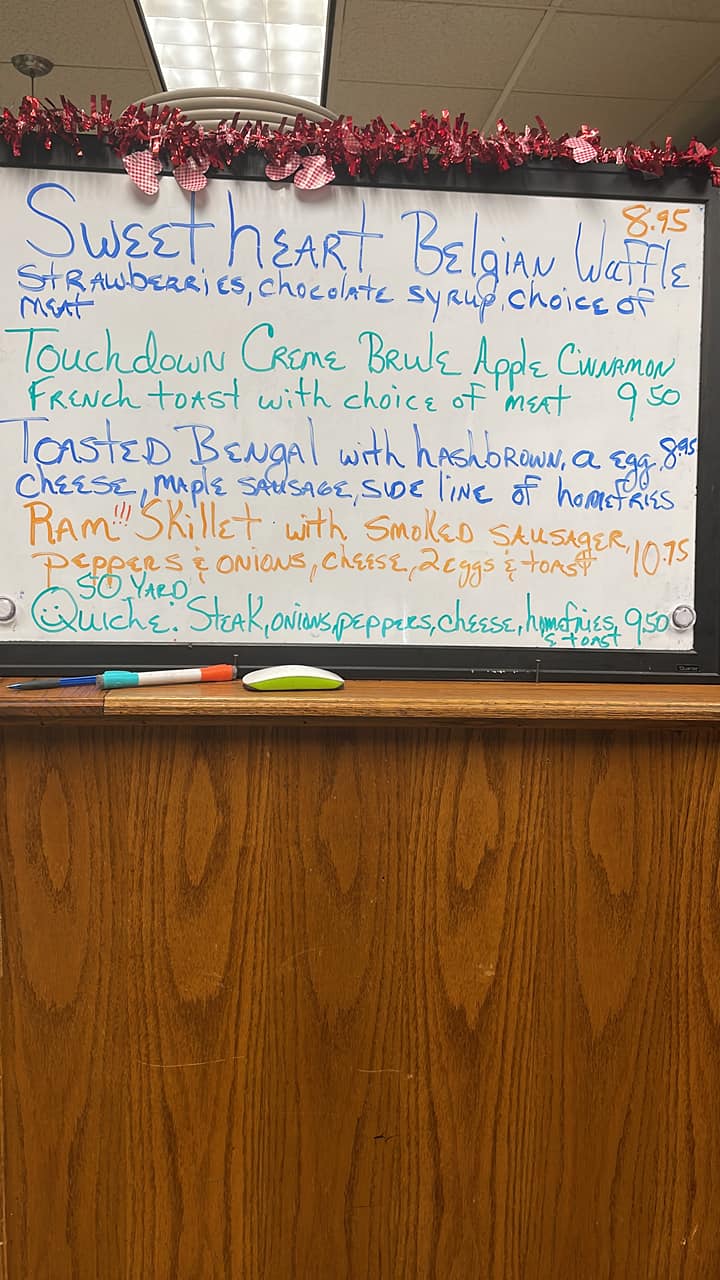 8.95
Sweetheart Belgian Waffle
Strawberries, chocolate syrup, choice of
meat
Touchdown Creme Brule Apple Cinnamon
French toast with choice of meat 9 50
Toasted Bengal with hashbrown, a egg, 8.95
cheese, maple sausage, side line of homefries
Ram!!! Skillet with smoked sausager, 10.75
peppers & onions, cheese, 2 eggs & toast
50 Yard
Quiche: Steak, onions, peppers, cheese, homefries, 9.50
& toast
Quartet